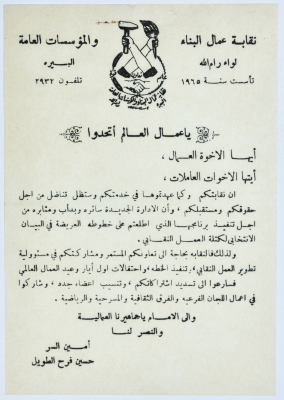 نقابة عمال البناء والمؤسسات العامة
لواء رام الله البيره
تأسست سنة ١٩٦٥ تلفون ٢٩٣٢
ياعمال العالم أتحدوا
أيها الاخوة العمال،
أيتها الاخوات العاملات،
ان نقابتكم وكما عهدتموها في خدمتكم وستظل تناضل من اجل
حقوقكم ومستقبلكم، وأن الادارة الجديدة سائره وبدأب ومثابره من
اجل تنفيذ برنامجها الذي اطلعتم على خطوطه العريضة في البيان
الانتخابي لكتلة العمل النقابي.
ولذلك فالنقابه بحاجة الى تعاونكم المستمر ومشاركتكم في مسئولية
تطوير العمل النقابي، تنفيذ الخطه، واحتفالات اول أيار وعيد العمال العالمي
فسارعوا الى تسديد اشتراكاتكم، وتنسيب اعضاء جدد، وشاركوا
في اعمال اللجان الفرعيه والفرق الثقافية والمسرحية والرياضية.
والى الامام ياجماهيرنا العمالية
والنصر لنا
أمين السر
حسين فرح الطويل